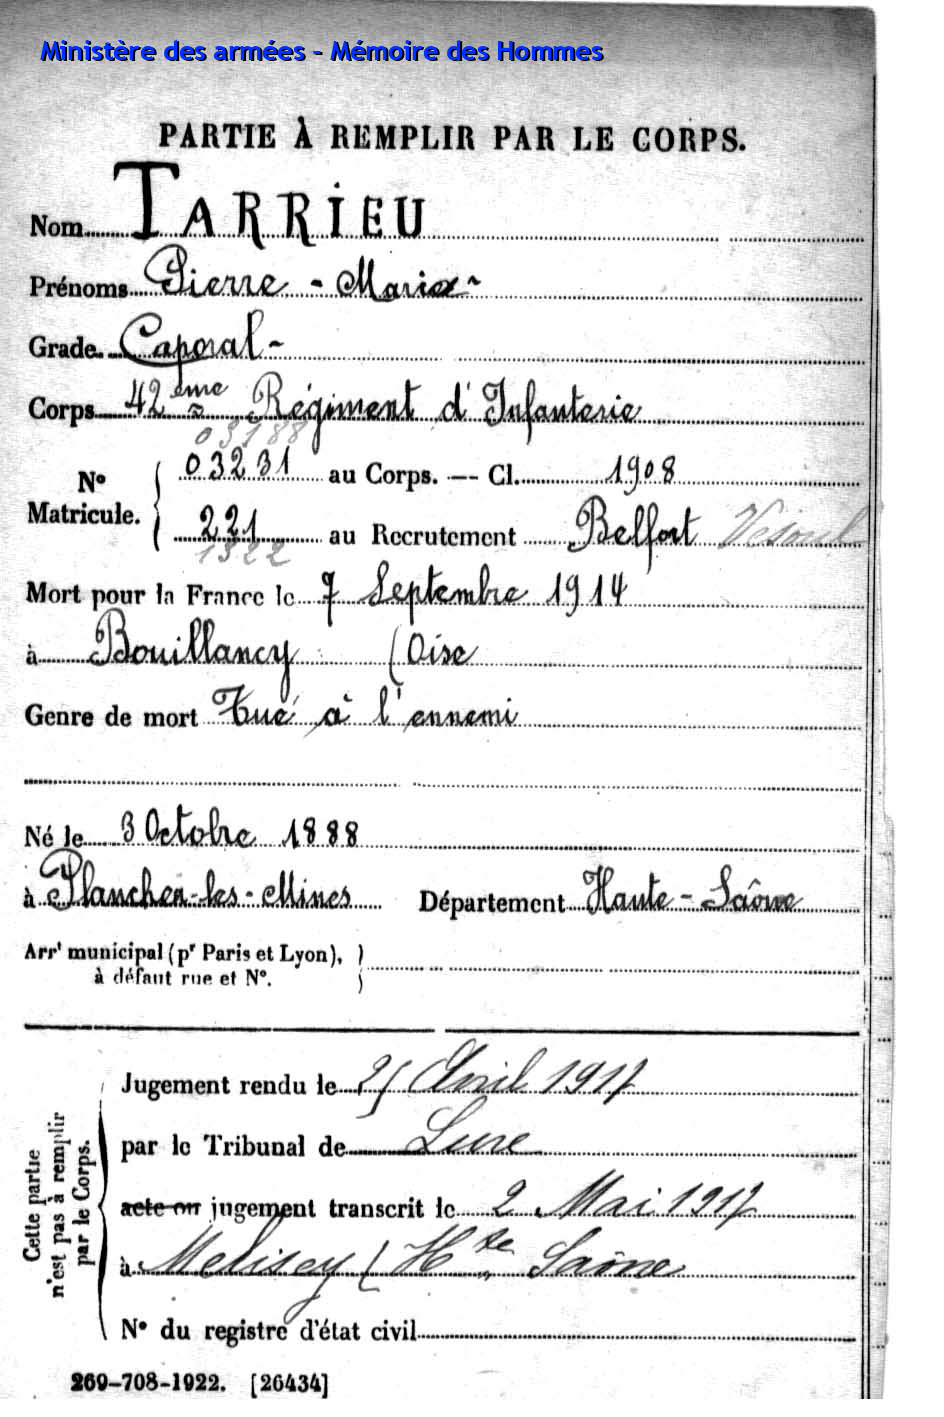 Ministère des armées - Mémoire des Hommes
PARTIE À REMPLIR PAR LE CORPS.
Nom TARRIEU
Prénoms Pierre - Marie -
Grade Caporal -
Corps 42ème Régiment d'Infanterie
03188
No Matricule. 03231 au Corps. — Cl. 1908
221 au Recrutement Belfort Vesoul
1322
Mort pour la France le 7 Septembre 1914
à Bouillancy (Oise
Genre de mort Tué à l'ennemi
Né le 3 Octobre 1888
à Plancher-les-Mines Département Haute-Saône
Arrt municipal (pr Paris et Lyon),
à défaut rue et No.
Cette partie n'est pas à remplir par le Corps.
Jugement rendu le 25 Avril 1917
par le Tribunal de Lure
acte ou jugement transcrit le 2 Mai 1917
à Melisey (Hte Saône
No du registre d'état civil
269-708-1922. [26434]